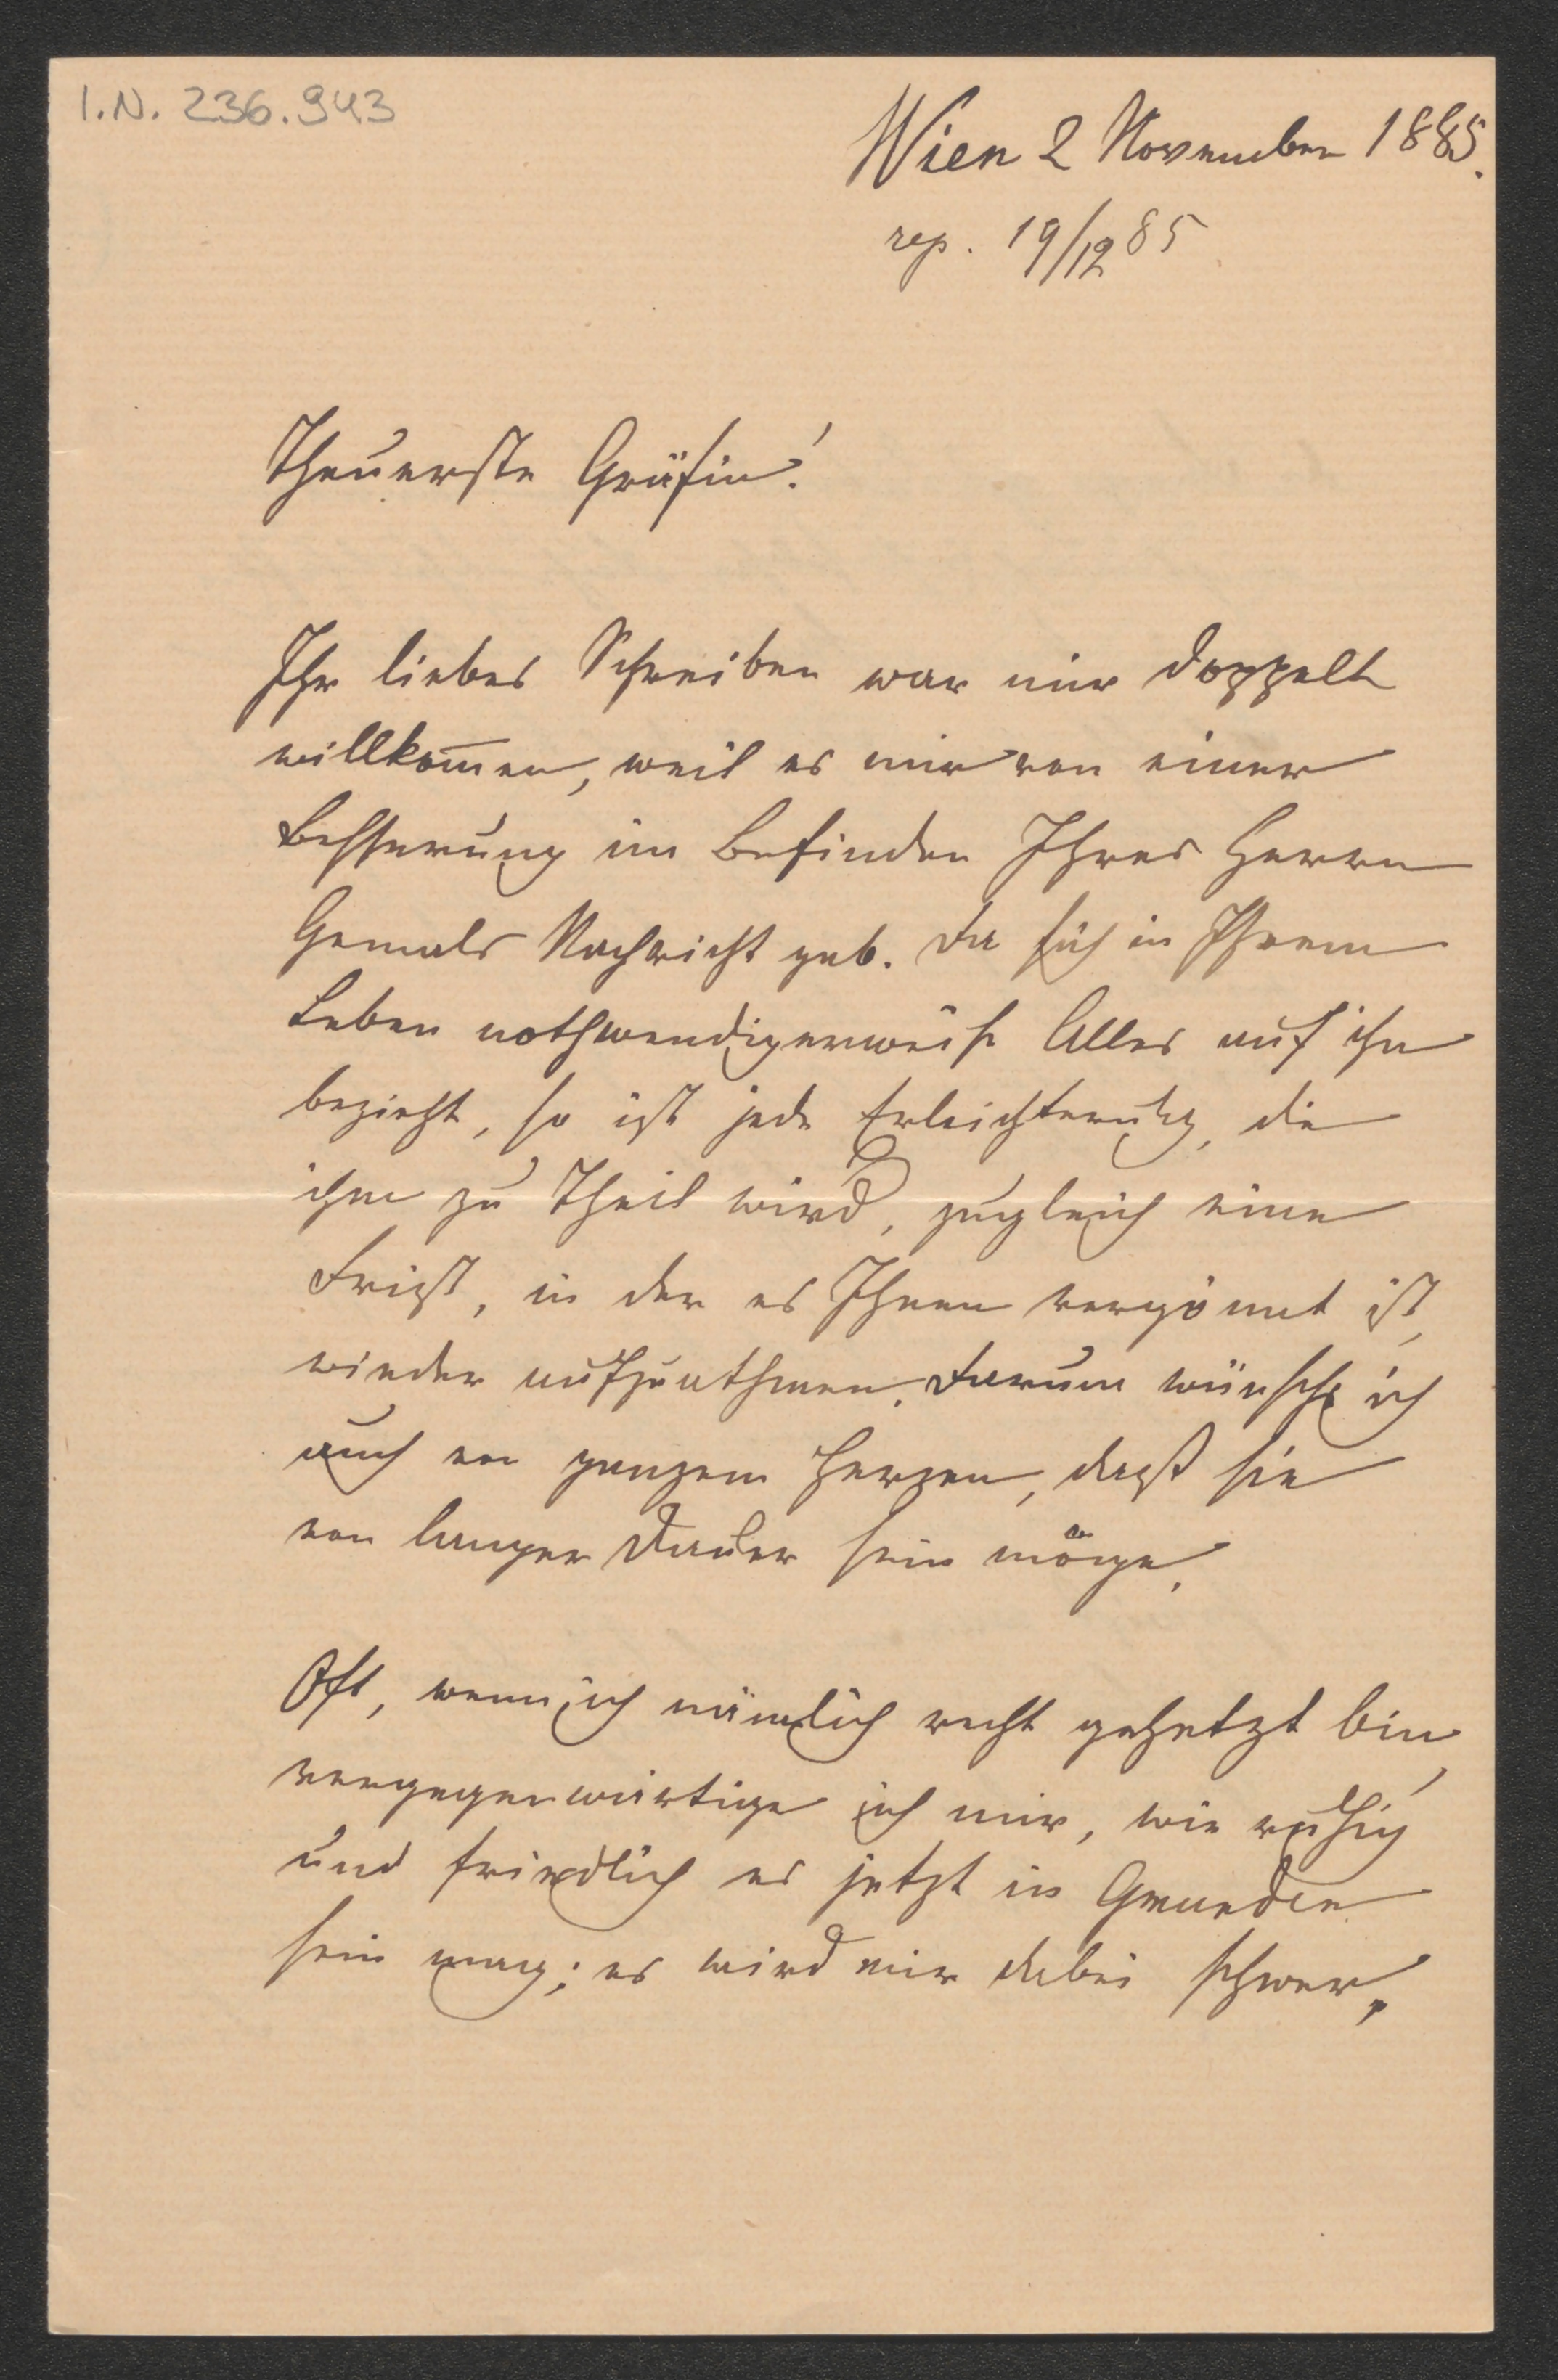 I.N. 236.943
Wien 2 November 1885.
rep. 19/12 85
Theuerste Gräfin!
Ihr liebes Schreiben war mir doppelt
willkom̅en, weil es mir von einer
Besserung im Befinden Ihres Herrn
Gemals Nachricht gab. Da sich in Ihrem
Leben nothwendigerweise Alles auf ihn
bezieht, so ist jede Erleichterung, die
ihm zu Theil wird, zugleich eine
Frist, in der es Ihnen vergönnt ist,
wieder aufzuathmen. Darum wünsche ich
auch von ganzem Herzen, dasß sie
von langer Dauer sein möge.
Oft, wenn ich nämlich recht gehetzt bin,
vergegenwärtige ich mir, wie ruhig
und friedlich es jetzt in Gmunden
sein mag; es wird mir dabei schwer,